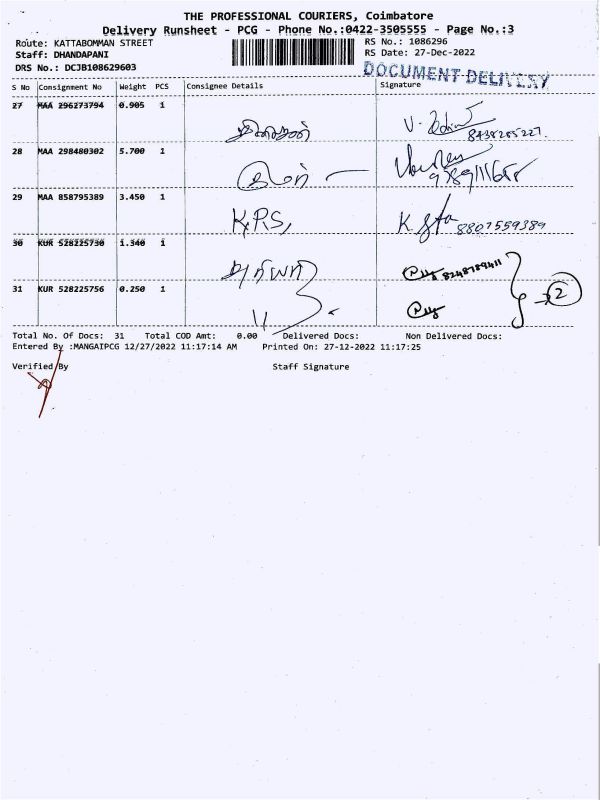 THE PROFESSIONAL COURIERS, Coimbatore
Delivery Runsheet - PCG - Phone No.:0422-3505555 - Page No.:3
Route: KATTABOMMAN STREET
RS No.: 1086296
Staff: DHANDAPANI
RS Date: 27-Dec-2022
DRS No.: DCJB108629603
DOCUMENT DELIVERY
S No Consignment No Weight PCS Consignee Details Signature
27 MAA 296273794 0.905 1
8438285227.
28 MAA 298480302 5.700 1
29 MAA 858795389 3.450 1
K.P.S,
8807559389
30 KUR 528225730 1.340 1
8248789411
31 KUR 528225756 0.250 1
2
Total No. Of Docs: 31 Total COD Amt: 0.00 Delivered Docs: Non Delivered Docs:
Entered By :MANGAIPCG 12/27/2022 11:17:14 AM Printed On: 27-12-2022 11:17:25
Verified By Staff Signature